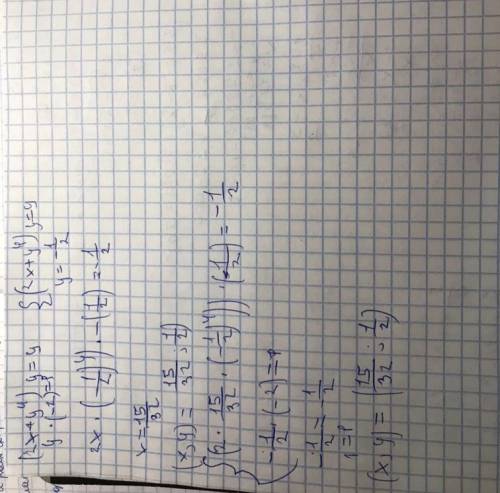 {(2x+y⁴)y=y {(2x+y⁴)y=y
y·(-2)=1 y=-1/2
2x·(-1/2)⁴)·-(1/2)=-1/2
x=15/32
(x,y)=(15/32;1/2)
{(2·15/32·(-1/2)⁴))·(-1/2)=-1/2
-1/2·(-2)=1
-1/2=-1/2
1=1
(x,y)=(15/32;1/2)